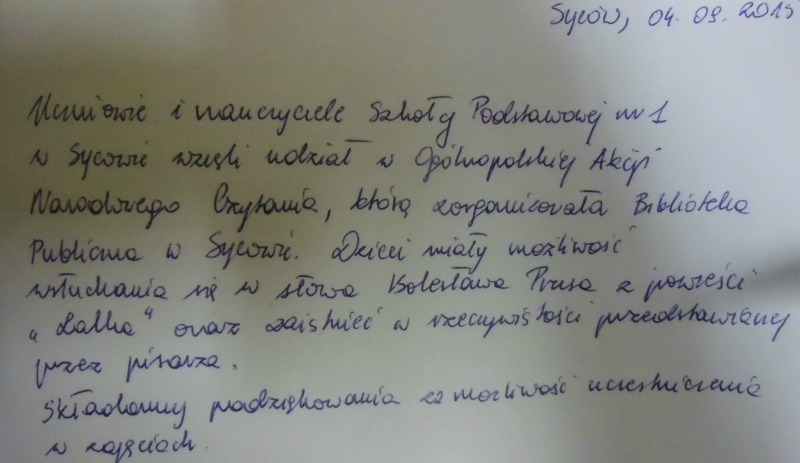 Syców, 04.09.2015
Uczniowie i nauczyciele Szkoły Podstawowej nr 1
w Sycowie wzięli udział w Ogólnopolskiej Akcji
Narodowego Czytania, którą zorganizowała Biblioteka
Publiczna w Sycowie. Dzieci miały możliwość
wsłuchania się w słowa Bolesława Prusa z powieści
„Lalka" oraz zaistnieć w rzeczywistości przedstawianej
przez pisarza.
Składamy podziękowania za możliwość uczestniczenia
w zajęciach.